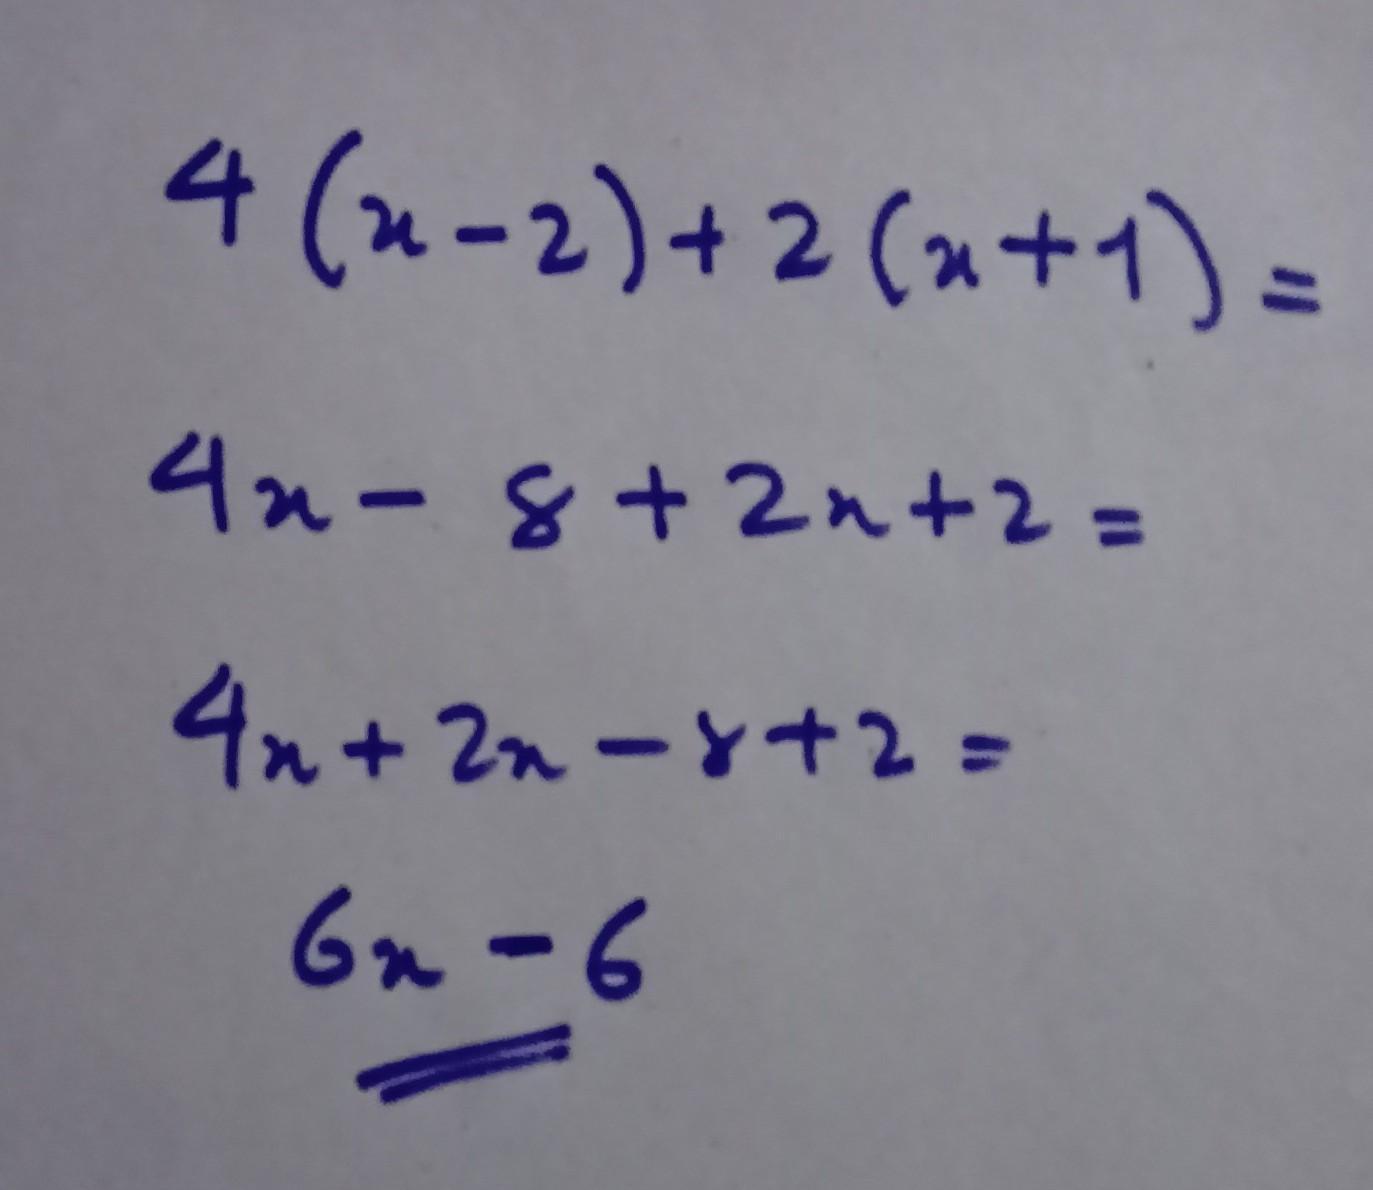 4(x-2)+2(x+1)=
4x-8+2x+2=
4x+2x-8+2=
6x-6